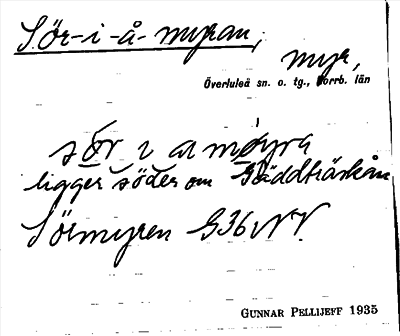 Sör-i-å-myran,
myr,
Överluleå sn. o. tg., Norrb. län
sör i a møyra
ligger söder om Gäddträskån
Sörmyren G36NV.
GUNNAR PELLIJEFF 1935